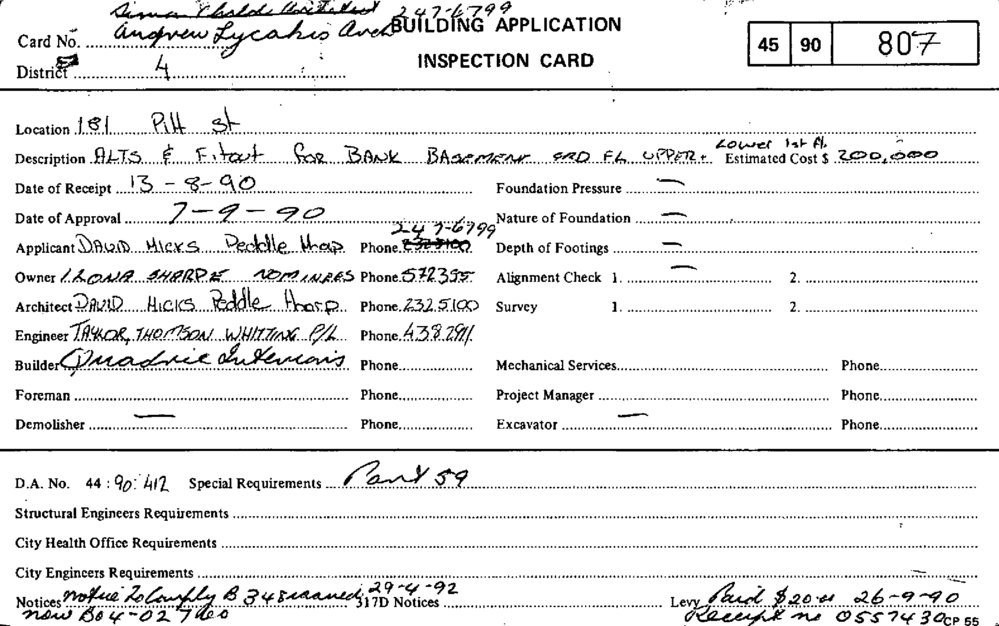 247-6799
Andrew Lycakis Arch BUILDING APPLICATION
Card No.
INSPECTION CARD
45 90 807
District 4
Location 181 Pitt St
Lower 1st Fl.
Description ALTS & Fitout for BANK BASEMENT GRD FL UPPER + Estimated Cost $ 200,000
Date of Receipt 13-8-90 Foundation Pressure —
Date of Approval 7-9-90 Nature of Foundation —
247-6799
Applicant DAVID HICKS Peddle Thorp Phone 2325100 Depth of Footings —
Owner ILONA SHARPE NOMINEES Phone 572355 Alignment Check 1. — 2.
Architect DAVID HICKS Peddle Thorp Phone 2325100 Survey 1. 2.
Engineer TAYLOR, THOMSON WHITTING P/L Phone 438 2911
Builder Quadric Interiors Phone Mechanical Services Phone
Foreman Phone Project Manager Phone
Demolisher — Phone Excavator — Phone
D.A. No. 44 : 90 : 412 Special Requirements Part 59
Structural Engineers Requirements
City Health Office Requirements
City Engineers Requirements —
Notices Notice to Comply B 348 issued 29-4-92 317D Notices Levy Paid $20.00 26-9-90
now B04-02 Receipt no 0557430 CP 55